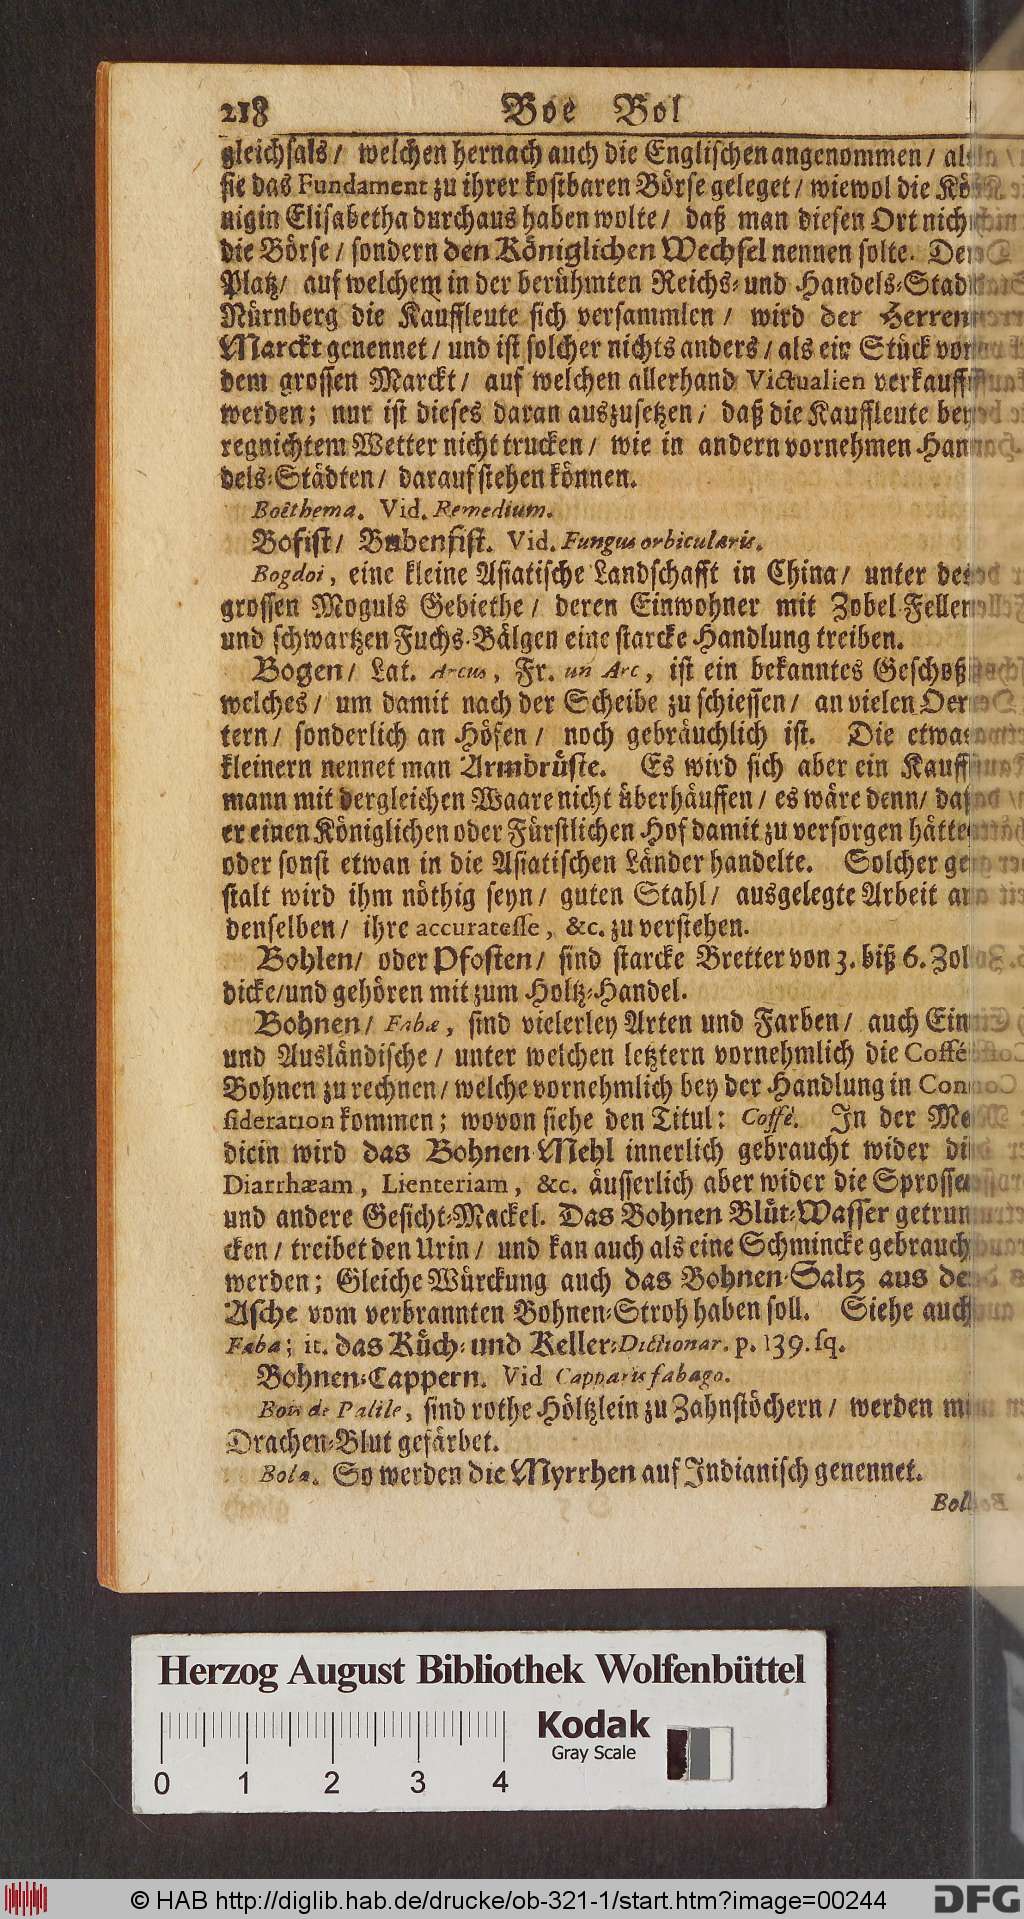 218 Boe Bol
gleichfals/ welchen hernach auch die Englischen angenommen/ als
sie das Fundament zu ihrer kostbaren Börse geleget/ wiewol die Kö⸗
nigin Elisabetha durchaus haben wolte/ daß man diesen Ort nich
die Börse/ sondern den Königlichen Wechsel nennen solte. Der
Platz/ auf welchem in der berühmten Reichs⸗ und Handels⸗Stadt
Nürnberg die Kauffleute sich versammlen/ wird der Herren⸗
Marckt genennet/ und ist solcher nichts anders/ als ein Stück von
dem grossen Marckt/ auf welchen allerhand Victualien verkaufft
werden; nur ist dieses daran auszusetzen/ daß die Kauffleute bey
regnichtem Wetter nicht trucken/ wie in andern vornehmen Han⸗
dels⸗Städten/ darauf stehen können.
Boëthema. Vid. Remedium.
Bofist/ Bubenfist. Vid. Fungus orbicularis.
Bogdoi, eine kleine Asiatische Landschafft in China/ unter des
grossen Moguls Gebiethe/ deren Einwohner mit Zobel⸗Fellen
und schwartzen Fuchs⸗Bälgen eine starcke Handlung treiben.
Bogen/ Lat. Arcus, Fr. un Arc, ist ein bekanntes Geschoß
welches/ um damit nach der Scheibe zu schiessen/ an vielen Oer⸗
tern/ sonderlich an Höfen/ noch gebräuchlich ist. Die etwas
kleinern nennet man Armbrüste. Es wird sich aber ein Kauff⸗
mann mit dergleichen Waare nicht überhäuffen/ es wäre denn/ daß
er einen Königlichen oder Fürstlichen Hof damit zu versorgen hätte
oder sonst etwan in die Asiatischen Länder handelte. Solcher ge⸗
stalt wird ihm nöthig seyn/ guten Stahl/ ausgelegte Arbeit an
denselben/ ihre accuratesse, &c. zu verstehen.
Bohlen/ oder Pfosten/ sind starcke Bretter von 3. biß 6. Zol
dicke/ und gehören mit zum Holtz⸗Handel.
Bohnen/ Fabæ, sind vielerley Arten und Farben/ auch Ein⸗
und Ausländische/ unter welchen letztern vornehmlich die Coffé
Bohnen zu rechnen/ welche vornehmlich bey der Handlung in Con⸗
sideration kommen; wovon siehe den Titul: Coffé. In der Me⸗
dicin wird das Bohnen⸗Mehl innerlich gebraucht wider die
Diarrhæam, Lienteriam, &c. äusserlich aber wider die Sprossen
und andere Gesicht⸗Mackel. Das Bohnen Blüt⸗Wasser getrun⸗
cken/ treibet den Urin/ und kan auch als eine Schmincke gebrauch
werden; Gleiche Würckung auch das Bohnen⸗Saltz aus de
Asche vom verbrannten Bohnen⸗Stroh haben soll. Siehe auch
Faba; it. das Küch⸗ und Keller⸗Dictionar. p. 139. sq.
Bohnen⸗Cappern. Vid Capparis fabago.
Bois de Palile, sind rothe Höltzlein zu Zahnstöchern/ werden mi
Drachen⸗Blut gefärbet.
Bola. So werden die Myrrhen auf Indianisch genennet.
Bol
Herzog August Bibliothek Wolfenbüttel
Kodak
Gray Scale
0 1 2 3 4
© HAB http://diglib.hab.de/drucke/ob-321-1/start.htm?image=00244
DFG